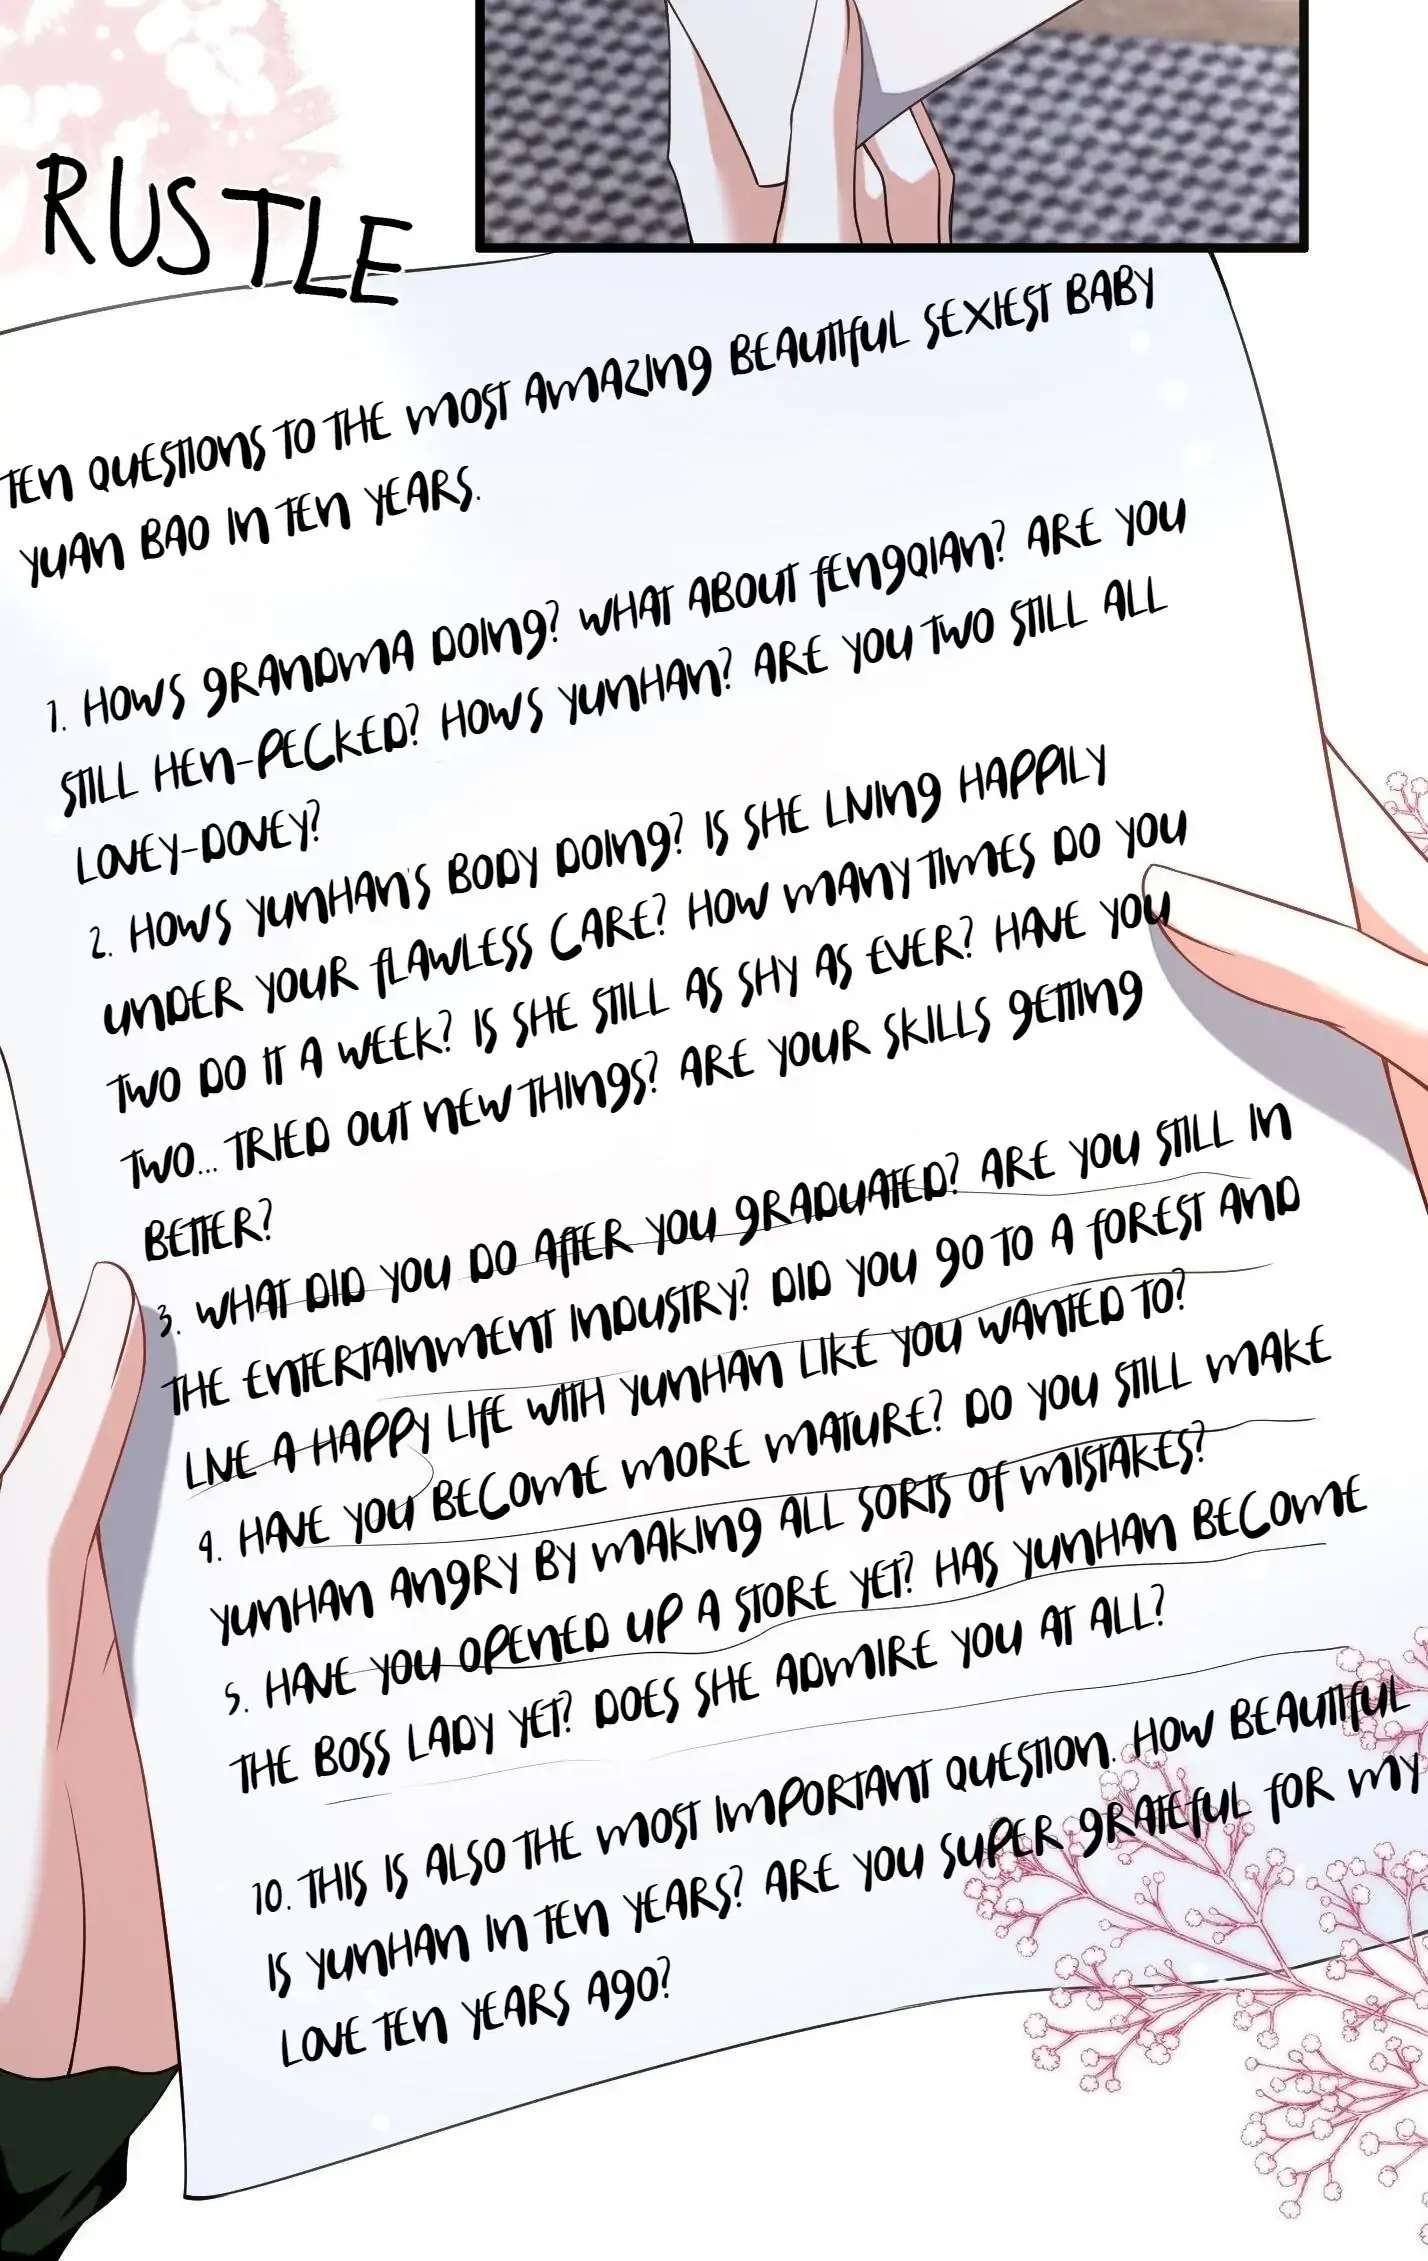 RUSTLE
TEN QUESTIONS TO THE MOST AMAZING BEAUTIFUL SEXIEST BABY
YUAN BAO IN TEN YEARS.
1. HOWS GRANDMA DOING? WHAT ABOUT FENGQIAN? ARE YOU
STILL HEN-PECKED? HOWS YUNHAN? ARE YOU TWO STILL ALL
LOVEY-DOVEY?
2. HOWS YUNHAN'S BODY DOING? IS SHE LIVING HAPPILY
UNDER YOUR FLAWLESS CARE? HOW MANY TIMES DO YOU
TWO DO IT A WEEK? IS SHE STILL AS SHY AS EVER? HAVE YOU
TWO... TRIED OUT NEW THINGS? ARE YOUR SKILLS GETTING
BETTER?
3. WHAT DID YOU DO AFTER YOU GRADUATED? ARE YOU STILL IN
THE ENTERTAINMENT INDUSTRY? DID YOU GO TO A FOREST AND
LIVE A HAPPY LIFE WITH YUNHAN LIKE YOU WANTED TO?
4. HAVE YOU BECOME MORE MATURE? DO YOU STILL MAKE
YUNHAN ANGRY BY MAKING ALL SORTS OF MISTAKES?
5. HAVE YOU OPENED UP A STORE YET? HAS YUNHAN BECOME
THE BOSS LADY YET? DOES SHE ADMIRE YOU AT ALL?
10. THIS IS ALSO THE MOST IMPORTANT QUESTION. HOW BEAUTIFUL
IS YUNHAN IN TEN YEARS? ARE YOU SUPER GRATEFUL FOR MY
LOVE TEN YEARS AGO?